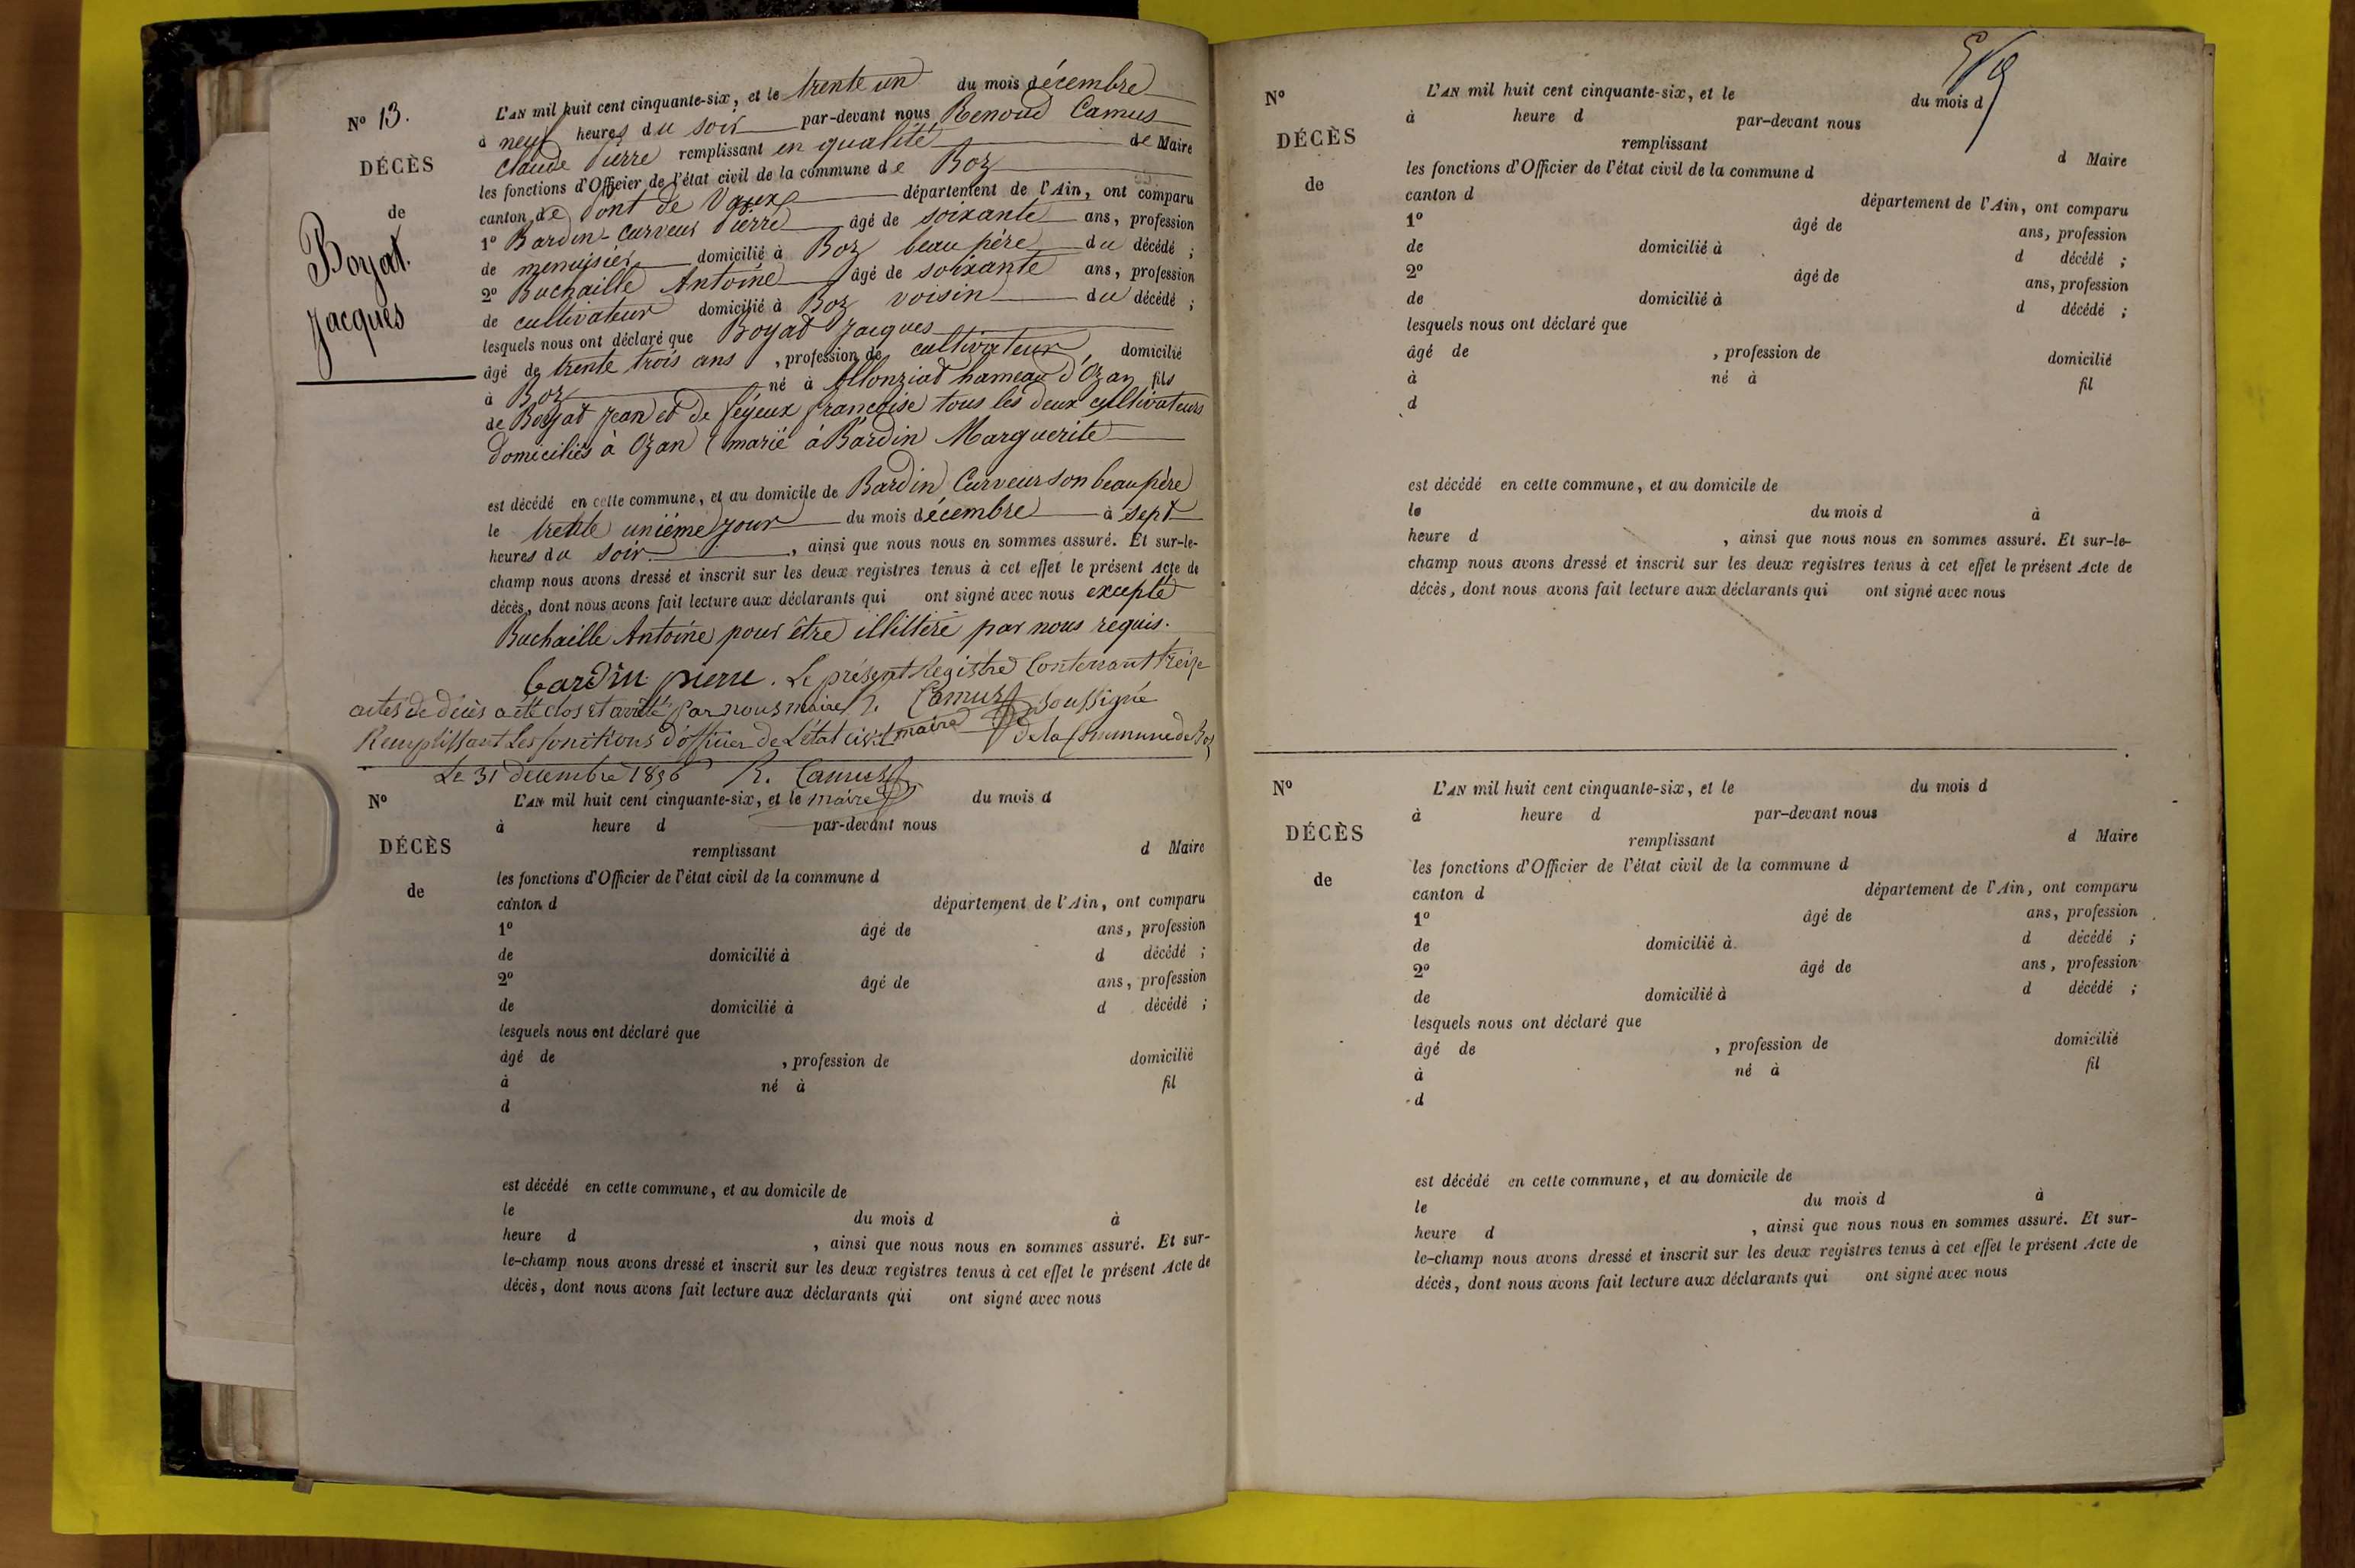 N° 13.
DÉCÈS
de
Boyat
Jacques
L'AN mil huit cent cinquante-six, et le trente un du mois décembre
à neuf heures du soir par-devant nous Renoud Camus
Claude Pierre remplissant en qualité de Maire
les fonctions d'Officier de l'état civil de la commune de Boz
canton de Pont de Vaux département de l'Ain, ont comparu
1° Bardin-Curveur Pierre âgé de soixante ans, profession
de menuisier domicilié à Boz beau père du décédé ;
2° Buchaille Antoine âgé de soixante ans, profession
de cultivateur domicilié à Boz voisin du décédé ;
lesquels nous ont déclaré que Boyat Jacques
âgé de trente trois ans , profession de cultivateur domicilié
à Boz né à hameau d'Ozan fils
de Boyat Jean et de Feyeux françoise tous les deux cultivateurs
domiciliés à Ozan marié à Bardin Marguerite
est décédé en cette commune, et au domicile de Bardin Curveur son beau père
le trente unième jour du mois décembre à sept
heures du soir , ainsi que nous nous en sommes assuré. Et sur-le-
champ nous avons dressé et inscrit sur les deux registres tenus à cet effet le présent Acte de
décès, dont nous avons fait lecture aux déclarants qui ont signé avec nous excepté
Buchaille Antoine pour être illitteré par nous requis.
bardin pierre. Le présent Registre Contenant treize
actes de décès a été clos et arrêté par nous maire R. Camus soussigné
Remplissant les fonctions d'officier de l'état civil maire de la Commune de Boz
Le 31 décembre 1856 R. Camus
maire
N°
DÉCÈS
de
L'AN mil huit cent cinquante-six, et le du mois d
à heure d par-devant nous
remplissant d Maire
les fonctions d'Officier de l'état civil de la commune d
canton d département de l'Ain, ont comparu
1° âgé de ans, profession
de domicilié à d décédé ;
2° âgé de ans, profession
de domicilié à d décédé ;
lesquels nous ont déclaré que
âgé de , profession de domicilié
à né à fil
d
est décédé en cette commune, et au domicile de
le du mois d à
heure d , ainsi que nous nous en sommes assuré. Et sur-
le-champ nous avons dressé et inscrit sur les deux registres tenus à cet effet le présent Acte de
décès, dont nous avons fait lecture aux déclarants qui ont signé avec nous
N°
DÉCÈS
de
L'AN mil huit cent cinquante-six, et le du mois d
à heure d par-devant nous
remplissant d Maire
les fonctions d'Officier de l'état civil de la commune d
canton d département de l'Ain, ont comparu
1° âgé de ans, profession
de domicilié à d décédé ;
2° âgé de ans, profession
de domicilié à d décédé ;
lesquels nous ont déclaré que
âgé de , profession de domicilié
à né à fil
d
est décédé en cette commune, et au domicile de
le du mois d à
heure d , ainsi que nous nous en sommes assuré. Et sur-le-
champ nous avons dressé et inscrit sur les deux registres tenus à cet effet le présent Acte de
décès, dont nous avons fait lecture aux déclarants qui ont signé avec nous
N°
DÉCÈS
de
L'AN mil huit cent cinquante-six, et le du mois d
à heure d par-devant nous
remplissant d Maire
les fonctions d'Officier de l'état civil de la commune d
canton d département de l'Ain, ont comparu
1° âgé de ans, profession
de domicilié à d décédé ;
2° âgé de ans, profession
de domicilié à d décédé ;
lesquels nous ont déclaré que
âgé de , profession de domicilié
à né à fil
d
est décédé en cette commune, et au domicile de
le du mois d à
heure d , ainsi que nous nous en sommes assuré. Et sur-
le-champ nous avons dressé et inscrit sur les deux registres tenus à cet effet le présent Acte de
décès, dont nous avons fait lecture aux déclarants qui ont signé avec nous